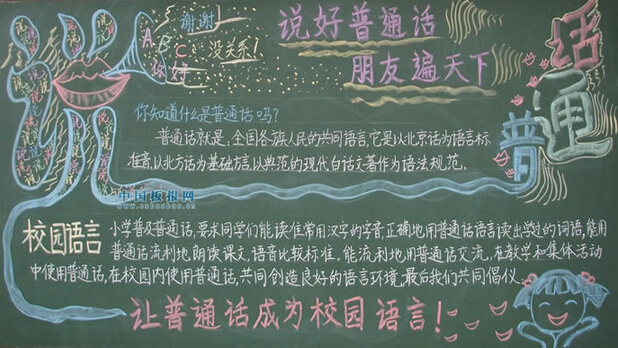 说
谢谢!
A
B
C
你好
没关系!
说好普通话
朋友遍天下
普通话
你知道什么是普通话吗?
普通话就是,全国各族人民的共同语言,它是以北京话为语言标
准音,以北方话为基础方言,以典范的现代白话文著作为语法规范.
中国板报网
校园语言
小学普及普通话,要求同学们能读准常用汉字的字音,正确地用普通话语言读出学过的词语,能用
普通话流利地朗读课文,语音比较标准,能流利地用普通话交流,在教学和集体活动
中使用普通话,在校园内使用普通话,共同创造良好的语言环境,最后我们共同倡议:
让普通话成为校园语言!